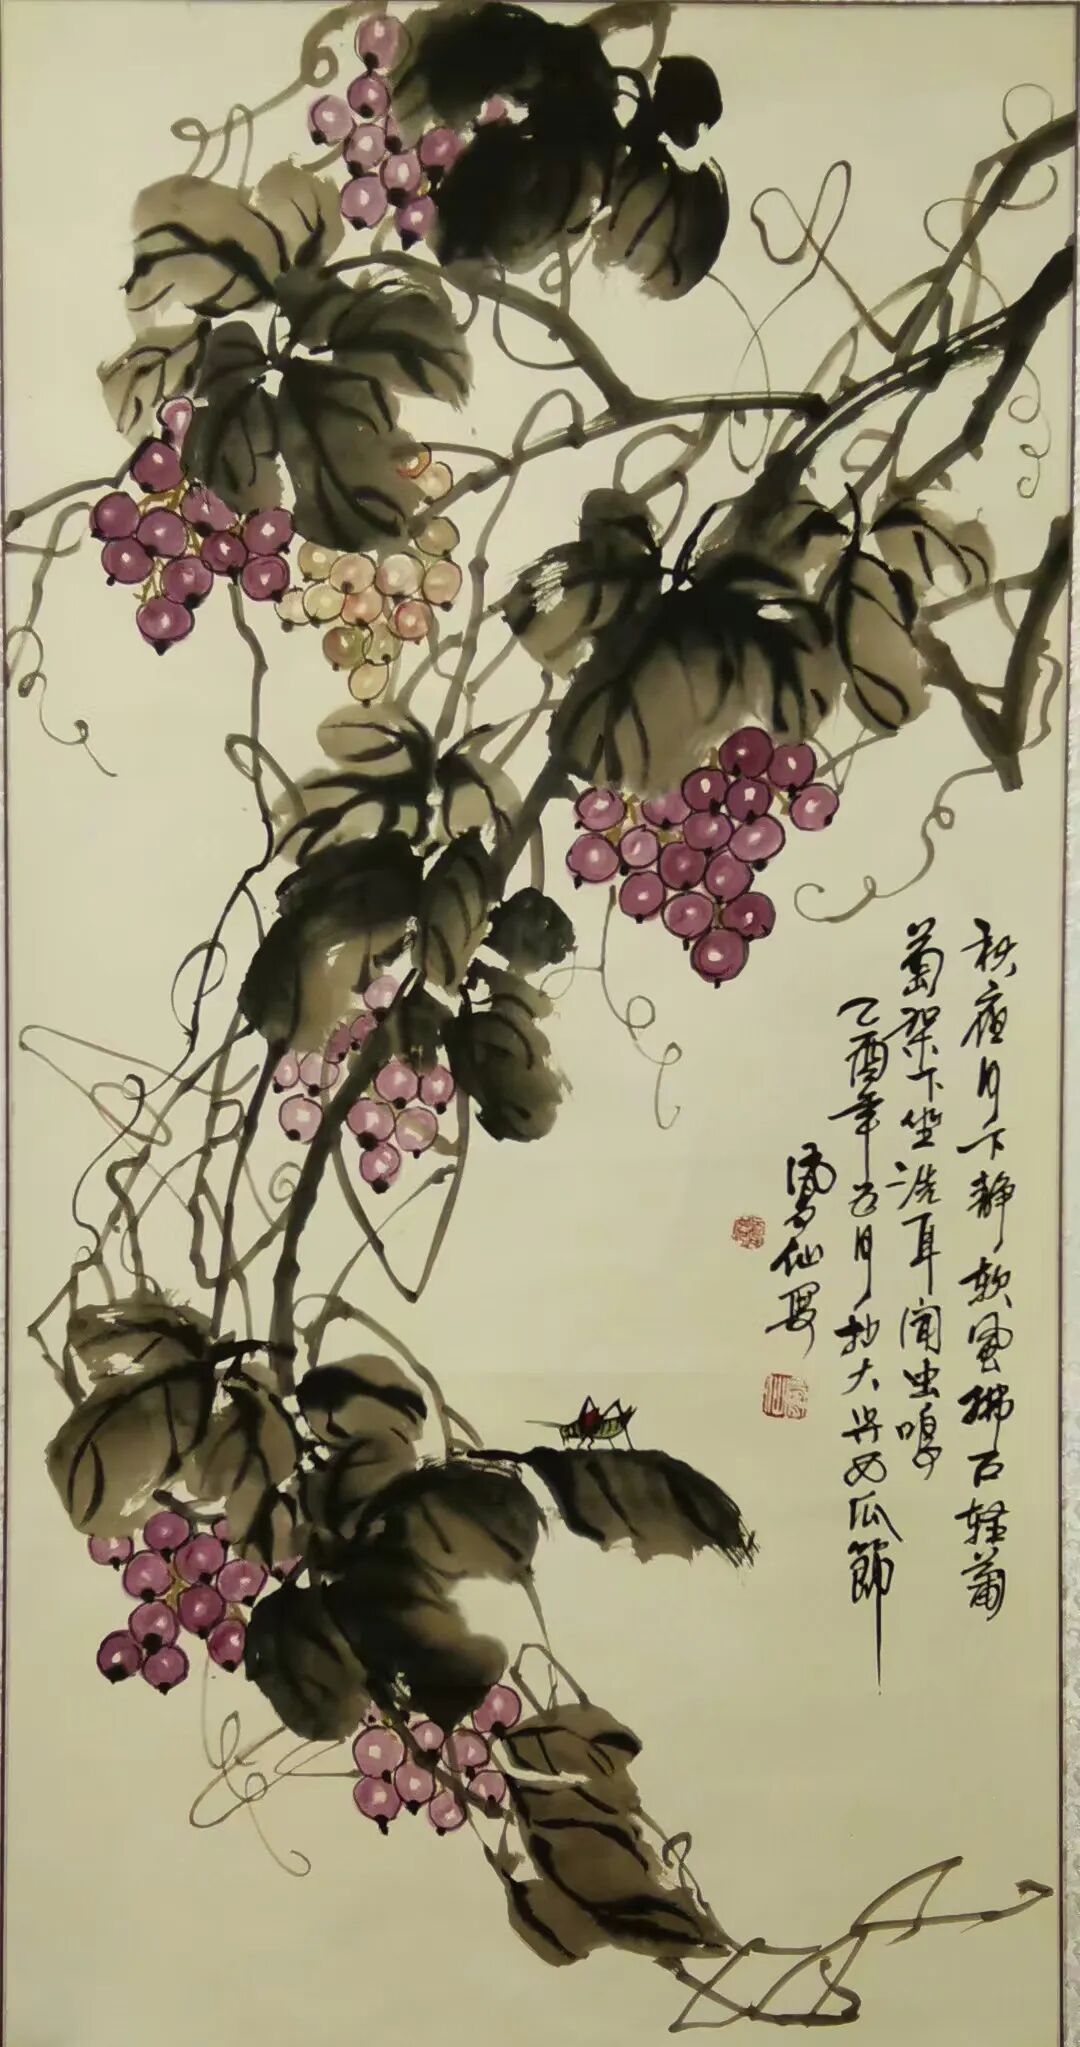 秋夜月下静软风拂面轻葡
萄架下坐洗耳闻虫鸣
乙酉年五月抄大兴西瓜節
仙写